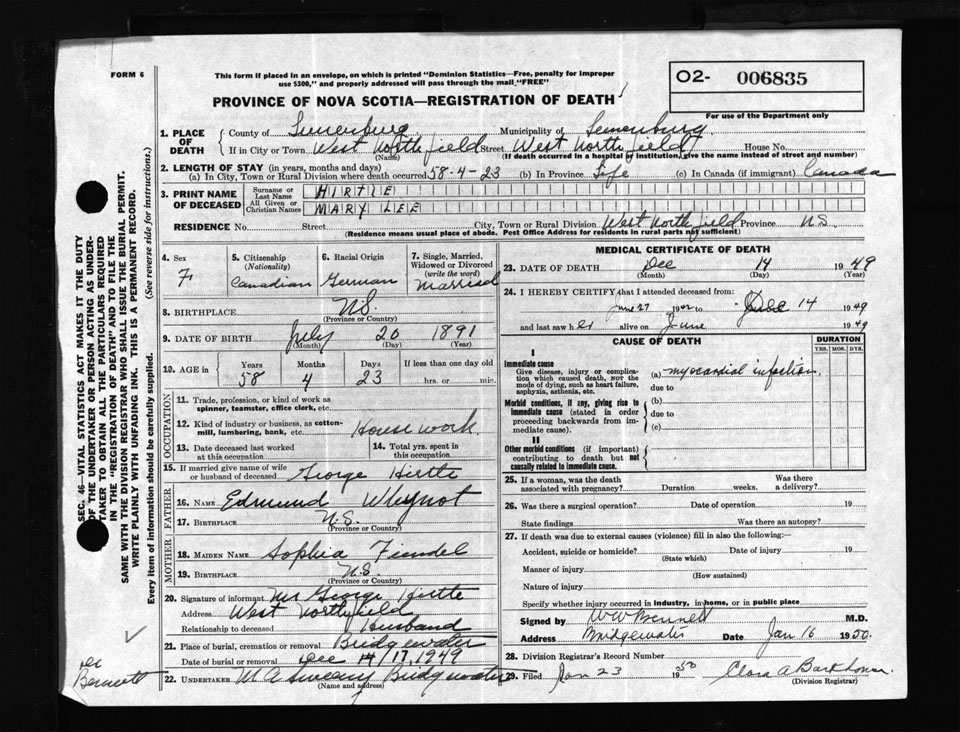 FORM 6
This form if placed in an envelope, on which is printed "Dominion Statistics—Free, penalty for improper
use $300," and properly addressed will pass through the mail "FREE"
O2- 006835
For use of the Department only
PROVINCE OF NOVA SCOTIA—REGISTRATION OF DEATH
1. PLACE OF DEATH
County of Lunenburg Municipality of Lunenburg
If in City or Town West Northfield Street West Northfield House No.
(Name) (If death occurred in a hospital or institution, give the name instead of street and number)
2. LENGTH OF STAY (in years, months and days)
(a) In City, Town or Rural Division where death occurred 58-4-23 (b) In Province Life (c) In Canada (if immigrant) Canada
3. PRINT NAME OF DECEASED
Surname or Last Name HIRTLE
All Given or Christian Names MARY LEE
RESIDENCE No. Street City, Town or Rural Division West Northfield Province N.S.
(Residence means usual place of abode. Post Office Address for residents in rural parts not sufficient)
4. Sex F
5. Citizenship (Nationality) Canadian
6. Racial Origin German
7. Single, Married, Widowed or Divorced (write the word) Married
8. BIRTHPLACE N.S.
(Province or Country)
9. DATE OF BIRTH July 20 1891
(Month) (Day) (Year)
10. AGE in Years 58 Months 4 Days 23 If less than one day old hrs. or min.
OCCUPATION
11. Trade, profession, or kind of work as spinner, teamster, office clerk, etc.
12. Kind of industry or business, as cotton-mill, lumbering, bank, etc. House work
13. Date deceased last worked at this occupation
14. Total yrs. spent in this occupation
15. If married give name of wife or husband of deceased George Hirtle
FATHER
16. NAME Edmund Whynot
17. BIRTHPLACE N.S.
(Province or Country)
MOTHER
18. MAIDEN NAME Sophia Findel
19. BIRTHPLACE N.S.
(Province or Country)
20. Signature of informant Mr George Hirtle
Address West Northfield
Relationship to deceased Husband
21. Place of burial, cremation or removal Bridgewater
Date of burial or removal Dec 17, 1949
22. UNDERTAKER M A Sweeny Bridgewater
(Name and address)
MEDICAL CERTIFICATE OF DEATH
23. DATE OF DEATH Dec 14 1949
(Month) (Day) (Year)
24. I HEREBY CERTIFY that I attended deceased from:
June 27 1942 Dec 14 1949
and last saw her alive on June 1949
CAUSE OF DEATH
DURATION
YRS. MOS. DYS.
I
Immediate cause
Give disease, injury or complication which caused death, NOT the mode of dying, such as heart failure, asphyxia, asthenia, etc.
(a) myocardial infection
due to
Morbid conditions, if any, giving rise to immediate cause (stated in order proceeding backwards from immediate cause).
(b)
due to
(c)
II
Other morbid conditions (if important) contributing to death but not causally related to immediate cause.
25. If a woman, was the death associated with pregnancy? Duration weeks. Was there a delivery?
26. Was there a surgical operation? Date of operation 19
State findings Was there an autopsy?
27. If death was due to external causes (violence) fill in also the following:
Accident, suicide or homicide? Date of injury 19
(State which)
Manner of injury
(How sustained)
Nature of injury
Specify whether injury occurred in industry, in home, or in public place
Signed by W W Bennett M.D.
Address Bridgewater Date Jan 16 1950.
28. Division Registrar's Record Number
29. Filed Jan 23 1950 Clora A Barkhouse
(Division Registrar)
SEC. 46—VITAL STATISTICS ACT MAKES IT THE DUTY
OF THE UNDERTAKER OR PERSON ACTING AS UNDER-
TAKER TO OBTAIN ALL THE PARTICULARS REQUIRED
IN THE "REGISTRATION OF DEATH" AND TO FILE THE
SAME WITH THE DIVISION REGISTRAR WHO SHALL ISSUE THE BURIAL PERMIT.
WRITE PLAINLY WITH UNFADING INK. THIS IS A PERMANENT RECORD.
Every item of information should be carefully supplied. (See reverse side for instructions.)
Dr
Bennett